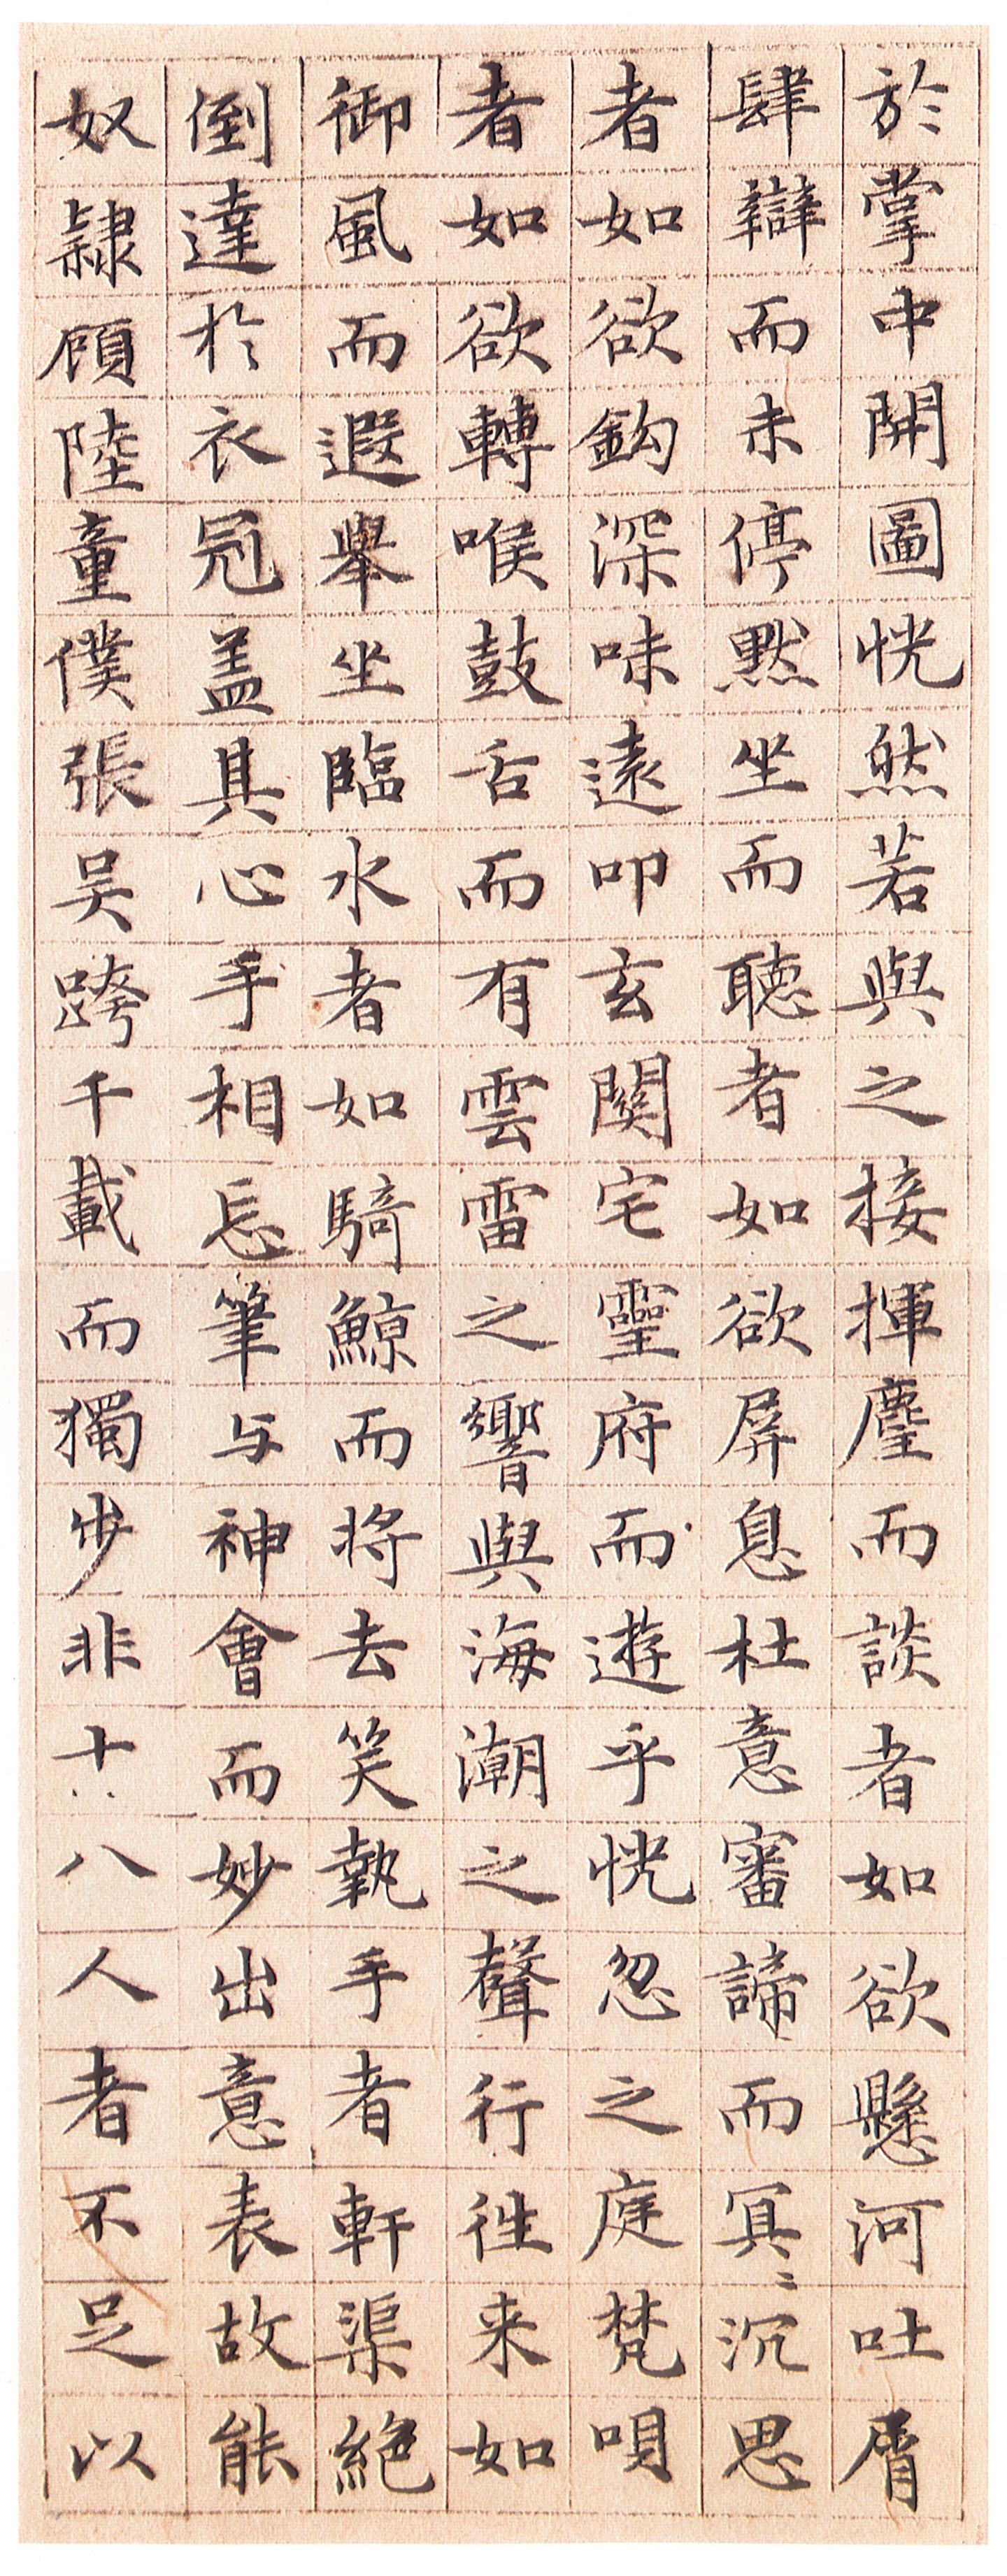 於掌中開圖恍然若與之接揮麈而談者如欲懸河吐屑
肆辯而未停默坐而聽者如欲屏息杜意審諦而冥〻沉思
者如欲鈎深味遠叩玄關宅靈府而遊乎恍忽之庭梵唄
者如欲轉喉鼓舌而有雲雷之響與海潮之聲行徃来如
御風而遐舉坐臨水者如騎鯨而将去笑執手者軒渠絕
倒達於衣冠盖其心手相忘筆与神會而妙出意表故能
奴隷顧陸童僕張吴跨千載而獨步非十八人者不足以